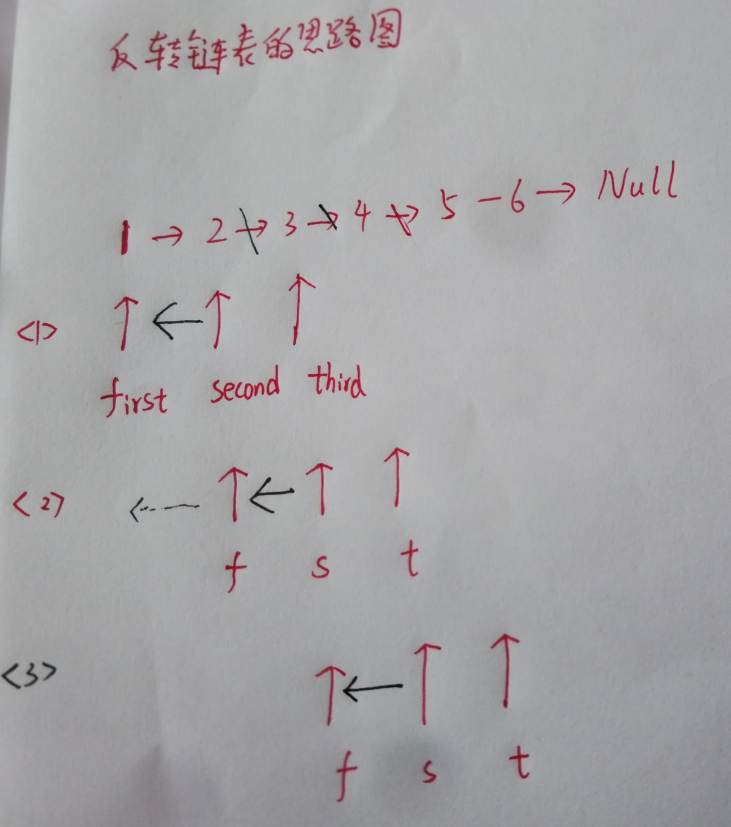 反转链表的思路图
1 → 2 → 3 → 4 → 5 - 6 → Null
<1>
first second third
<2>
f s t
<3>
f s t